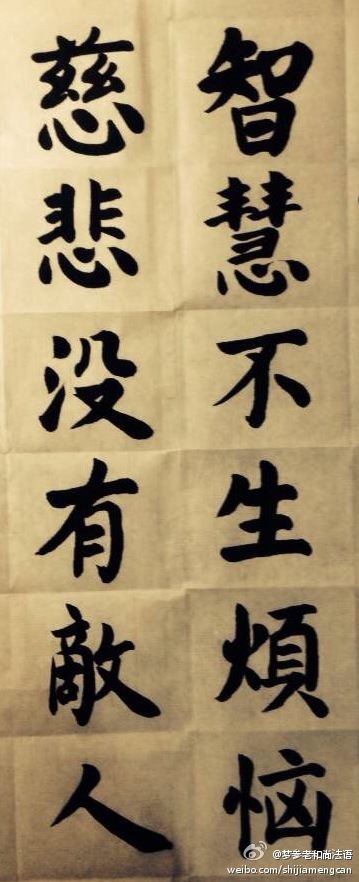 智慧不生煩恼
慈悲没有敵人
@梦参老和尚法语
weibo.com/shijiamengcan